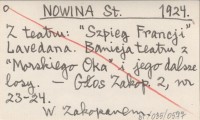 NOWINA St. 1924.
Z teatru: "Szpieg Francji"
Lavedana. Banicja teatru z
"Morskiego Oka" i jego dalsze
losy. — Głos Zakop. 2, nr
23-24.
W Zakopanem